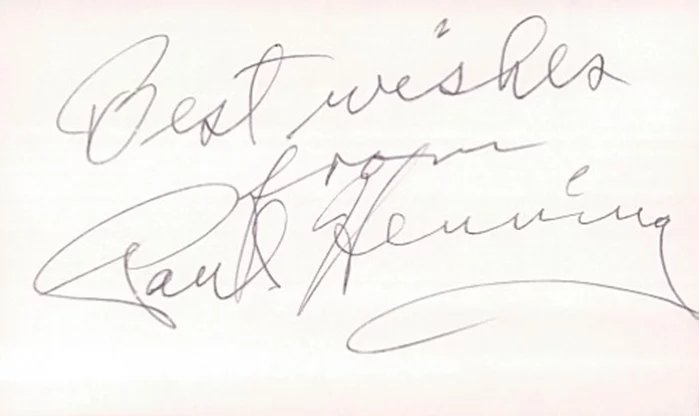 Best wishes
from
Paul Henning